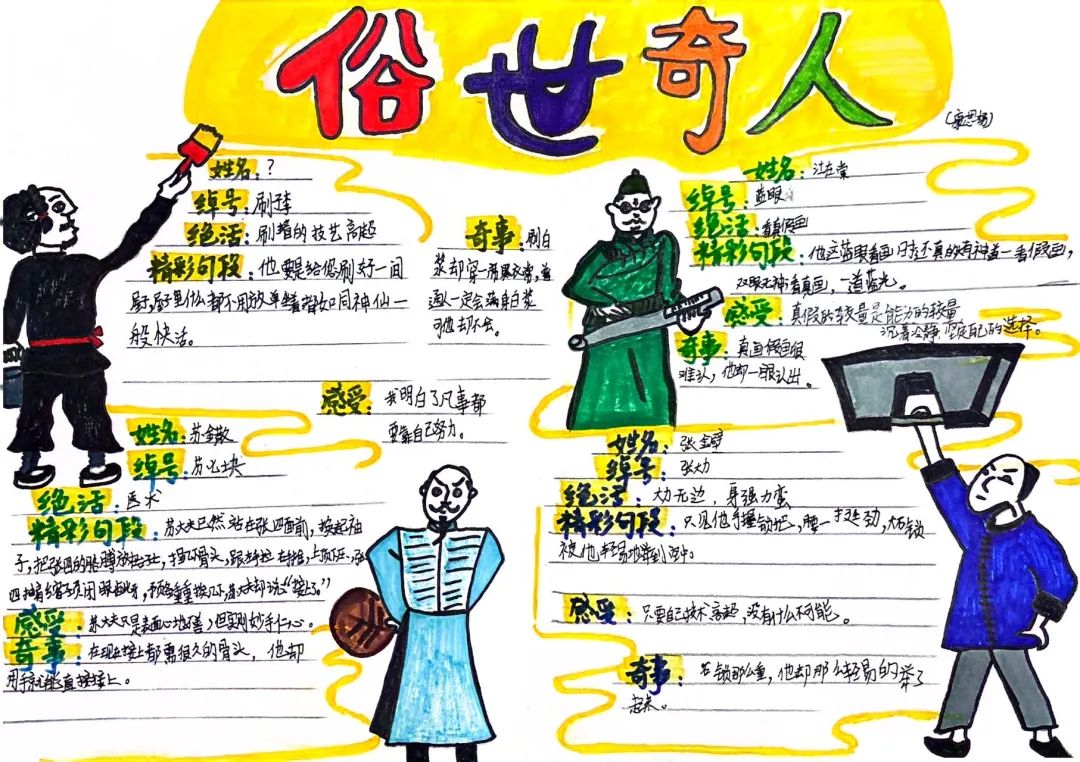 俗世奇人
姓名：？
绰号：刷子李
绝活：刷墙的技艺高超
精彩句段：他要是给您刷好一间
屋，屋里什么都不用放，单坐着，就如同神仙一
般快活。
奇事：刷白
浆却穿一身黑衣
一定会满身白浆
可他却不会。
感受：我明白了凡事都
要靠自己努力。
姓名：江在棠
绰号：蓝眼
绝活：看假画
精彩句段：他这蓝眼看画
双眼无神看真画，一道蓝光。
感受：真假的较量是能力的较量
沉着冷静 坚定自己的选择。
奇事：真画假画很
难认，他却一眼认出。
姓名：苏金散
绰号：苏七块
绝活：医术
精彩句段：苏大夫已然站在张四面前，挽起袖
感受：苏大夫只是表面心地不善，但实则妙手仁心。
奇事：在现在接上都需很久的骨头，他却
用手就能直接接上。
姓名：张金璧
绰号：张大力
绝活：力大无边，身强力蛮
精彩句段：只见他手握锁把，腰一挺劲，大石锁
被他轻易地举到空中。
感受：只要自己技术高超，没有什么不可能。
奇事：石锁那么重，他却那么轻易的举了
起来。